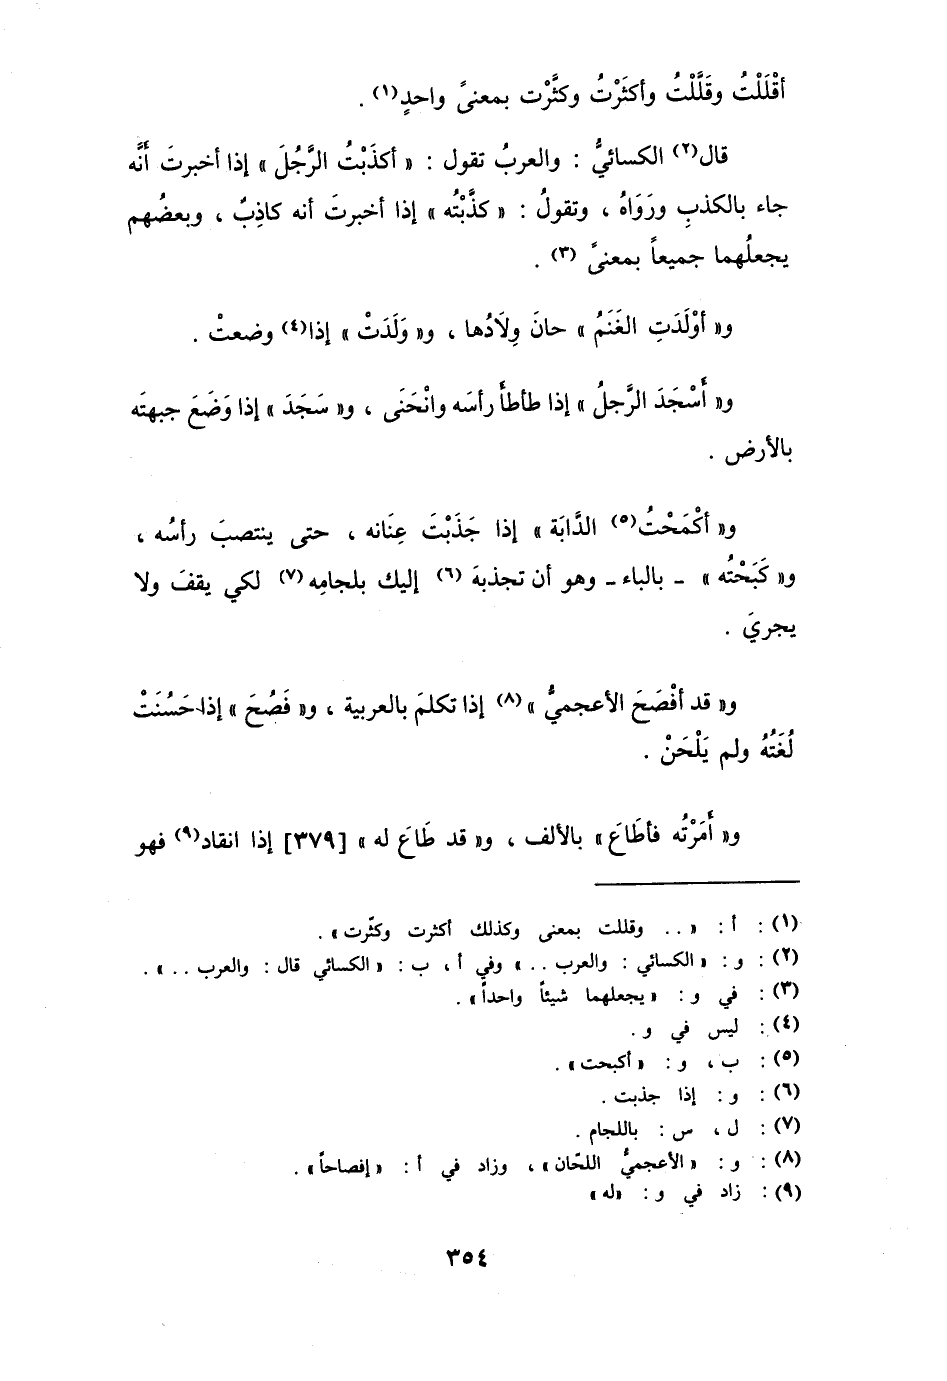 أقْلَلْتُ وقَلَّلْتُ وأكثَرْتُ وكثَّرْت بمعنىً واحدٍ(١) .
قال(٢) الكسائيُّ : والعربُ تقول : « أكذَبْتُ الرَّجُلَ » إذا أخبرتَ أَنَّه
جاء بالكذبِ ورَوَاهُ ، وتقولُ : « كذَّبْته » إذا أخبرتَ أنه كاذِبٌ ، وبعضُهم
يجعلُهما جميعاً بمعنىً (٣) .
و« أوْلَدَتِ الغَنَمُ » حانَ وِلَادُها ، و« وَلَدَتْ » إذا(٤) وضعتْ .
و« أَسْجَدَ الرَّجلُ » إذا طأطأَ رأسَه وانْحَنَى ، و« سَجَدَ » إذا وَضَعَ جبهتَه
بالأرض .
و« أكْمَحْتُ(٥) الدَّابَة » إذا جَذَبْتَ عِنَانه ، حتى ينتصبَ رأسُه ،
و« كَبَحْتُه » ـ بالباء ـ وهو أن تجذبهَ (٦) إليك بلجامِه (٧) لكي يقفَ ولا
يجريَ .
و« قد أفْصَحَ الأعجميُّ »(٨) إذا تكلمَ بالعربية ، و« فَصُحَ » إذا حَسُنَتْ
لُغَتُهُ ولم يَلْحَنْ .
و« أَمَرْتُه فأطَاعَ » بالألف ، و« قد طَاعَ له » [٣٧٩] إذا انقاد(٩) فهو
(١) : أ : « .. وقللت بمعنى وكذلك أكثرت وكثّرت » .
(٢) : و : « الكسائي : والعرب .. » وفي أ ، ب : « الكسائي قال : والعرب .. » .
(٣) : في و : « يجعلهما شيئاً واحداً » .
(٤) : ليس في و .
(٥) : ب ، و : « أكبحت » .
(٦) : و : إذا جذبت .
(٧) : ل ، س : باللجام .
(٨) : و : « الأعجميُّ اللحّان » ، وزاد في أ : « إفصاحاً » .
(٩) : زاد في و : «له»
٣٥٤